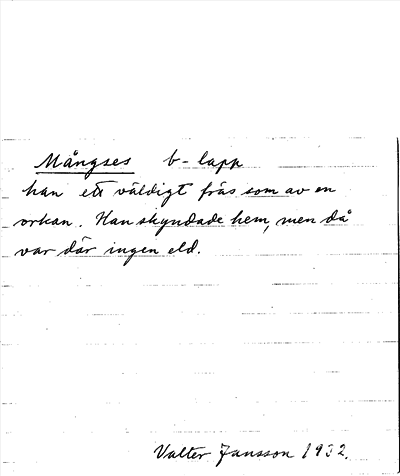 Mångses b-lapp
han ett väldigt fräs som av en
orkan. Han skyndade hem, men då
var där ingen eld.
Valter Jansson 1932.